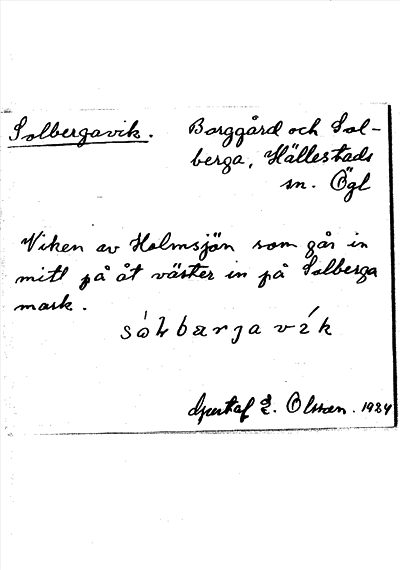 Solbergavik.
Borggård och Sol-
berga, Hällestads
sn. Ögl
Viken av Holmsjön som går in
mitt på åt väster in på Solberga
mark.
Gustaf E. Olsson. 1934